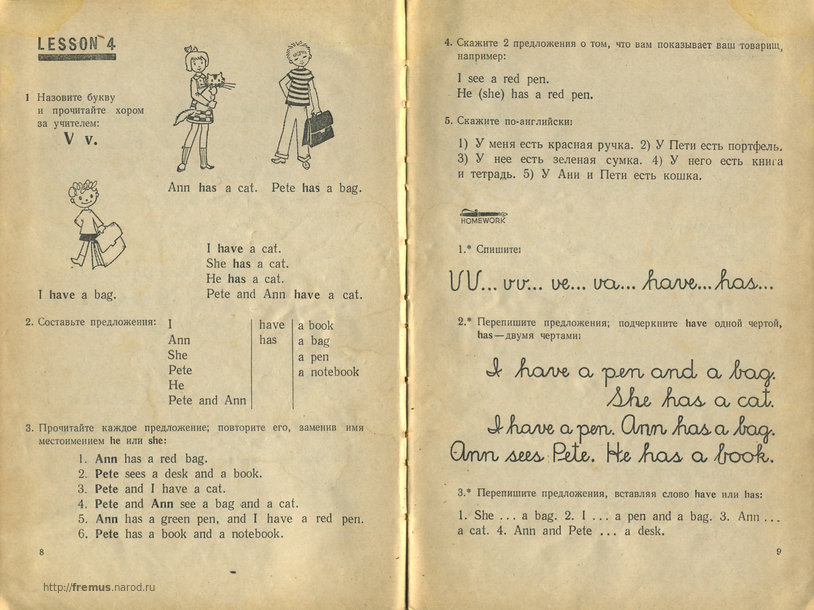 LESSON 4
1 Назовите букву
и прочитайте хором
за учителем:
V v.
Ann has a cat. Pete has a bag.
I have a bag.
I have a cat.
She has a cat.
He has a cat.
Pete and Ann have a cat.
2. Составьте предложения:
I have a book
Ann has a bag
She a pen
Pete a notebook
He
Pete and Ann
3. Прочитайте каждое предложение; повторите его, заменив имя
местоимением he или she:
1. Ann has a red bag.
2. Pete sees a desk and a book.
3. Pete and I have a cat.
4. Pete and Ann see a bag and a cat.
5. Ann has a green pen, and I have a red pen.
6. Pete has a book and a notebook.
8
http://fremus.narod.ru
4. Скажите 2 предложения о том, что вам показывает ваш товарищ,
например:
I see a red pen.
He (she) has a red pen.
5. Скажите по-английски:
1) У меня есть красная ручка. 2) У Пети есть портфель.
3) У нее есть зеленая сумка. 4) У него есть книга
и тетрадь. 5) У Ани и Пети есть кошка.
HOMEWORK
1.* Спишите:
VV... vv... ve... va... have... has...
2.* Перепишите предложения; подчеркните have одной чертой,
has — двумя чертами:
I have a pen and a bag.
She has a cat.
I have a pen. Ann has a bag.
Ann sees Pete. He has a book.
3.* Перепишите предложения, вставляя слово have или has:
1. She ... a bag. 2. I ... a pen and a bag. 3. Ann ...
a cat. 4. Ann and Pete ... a desk.
9